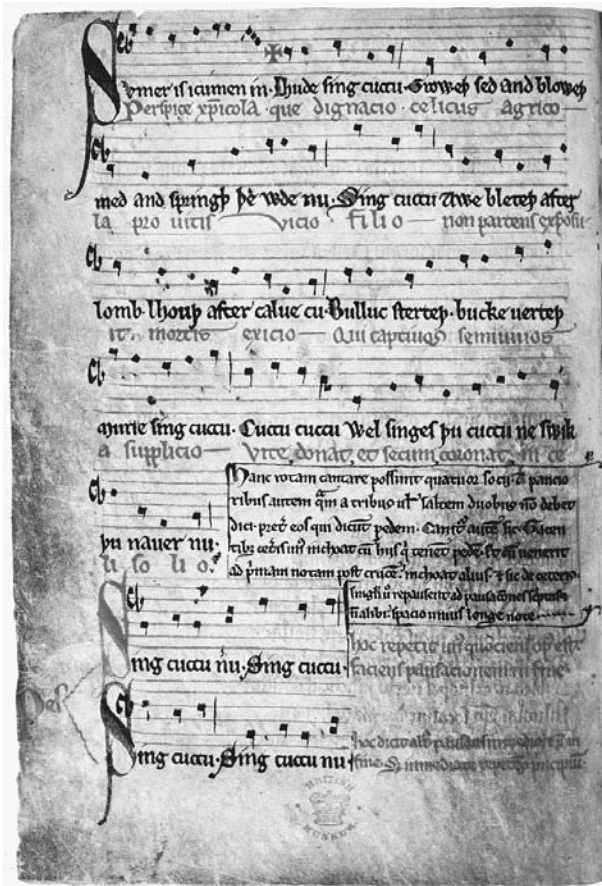 Sumer is icumen in· Lhude sing cuccu· Groweþ sed and bloweþ
Perspice xp̄icola· que dignacio· celicus agrico
med and springþ þe wde nu· Sing cuccu Awe bleteþ after
la pro uitis vicio filio non parcens exposu
lomb· lhouþ after calue cu· Bulluc sterteþ· bucke uerteþ
it· mortis exicio Qui captiuos semiuiuos
murie sing cuccu· Cuccu cuccu Wel singes þu cuccu ne swik
a supplicio Vite donat, et secum coronat, in ce
þu nauer nu·
li so lio·
Hanc rotam cantare possunt quatuor socii· A paucio
ribus autem quam a tribus uel saltem duobus non debet
dici· preter eos qui dicunt pedem· Canitur autem sic· Tacen
tibus ceteris unus inchoat cum hiis qui tenent pedem· Et cum uenerit
ad primam notam post crucem· inchoat alius· et sic de ceteris·
singuli uero repausent ad pausaciones scriptas
et non alibi· spacio unius longe note
Sing cuccu nu· Sing cuccu·
hoc repetit unus quociens opus est
faciens pausacionem in fine
Pes
Sing cuccu· Sing cuccu nu
hoc dicit alius pausans in medio et non in
fine· Sed immediate repetens principium·
BRITISH
MUSEUM